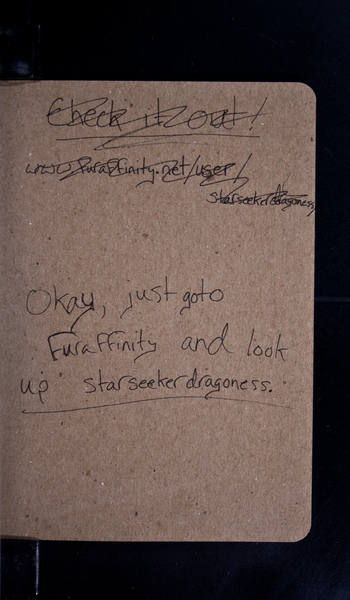 Check it out!
www.furaffinity.net/user/
starseekerdragoness
Okay, just goto
Furaffinity and look
up starseekerdragoness.